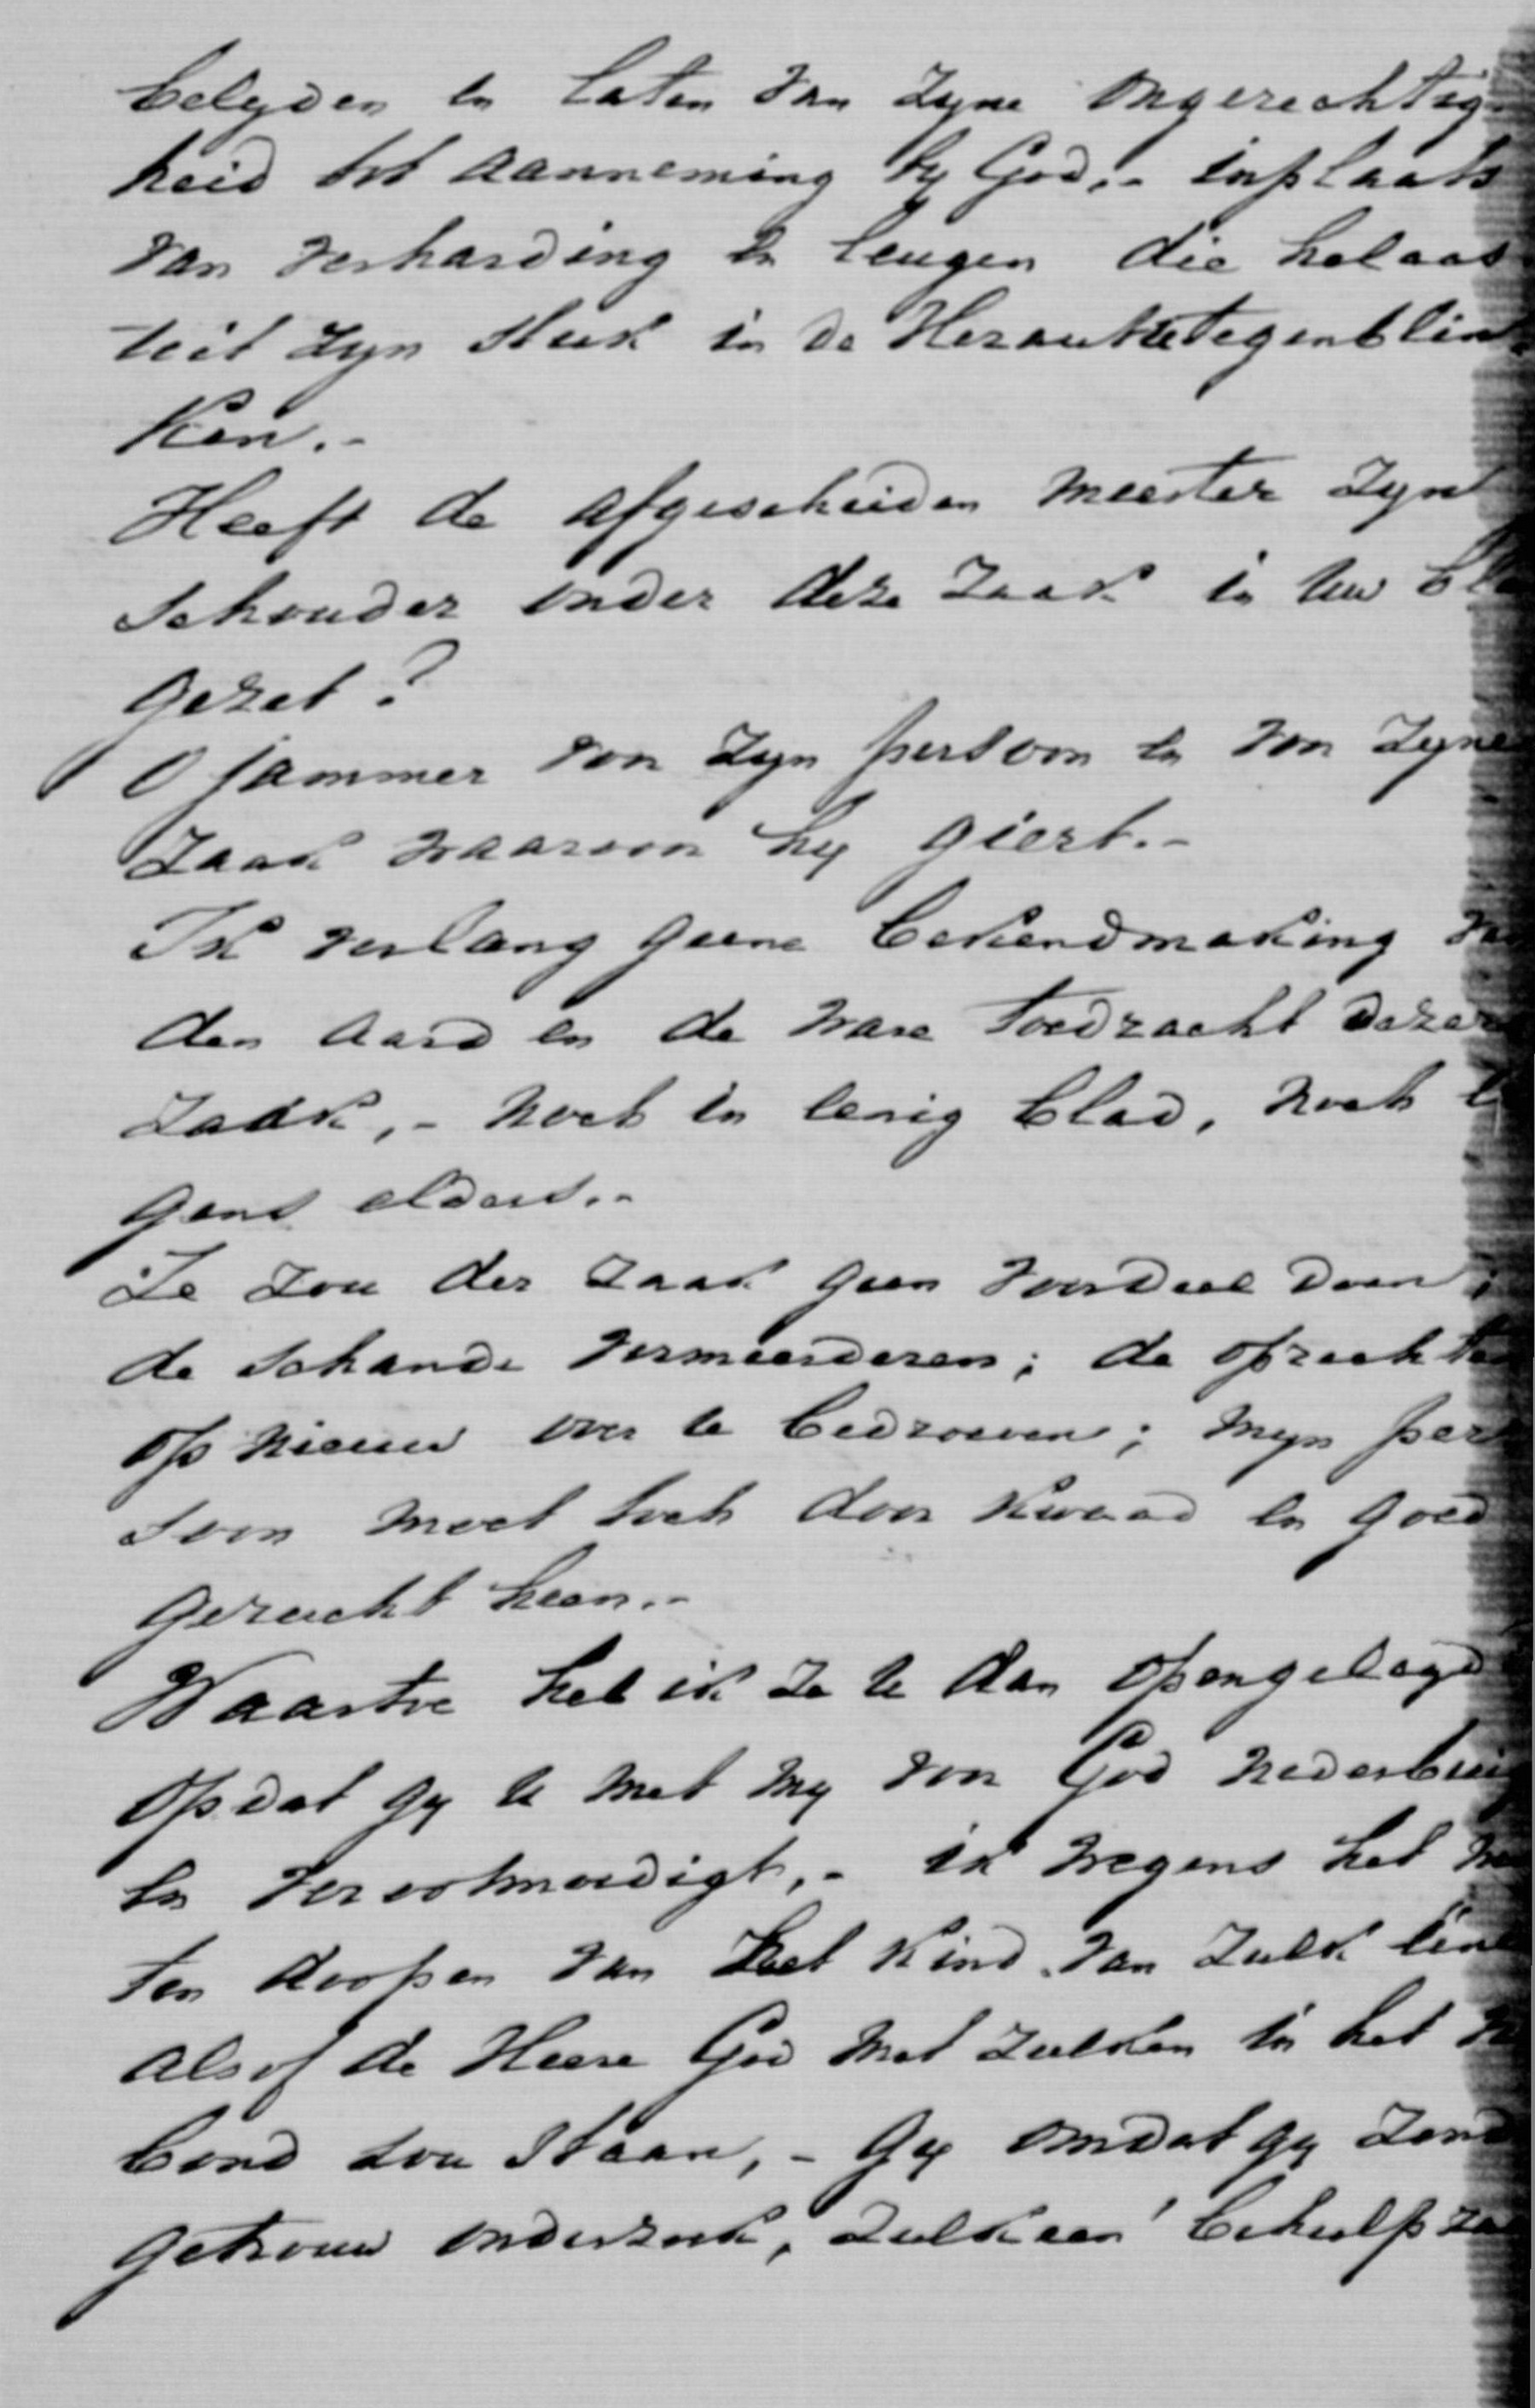 belyden en laten van zyne ongerechtig-
heid tot aanneming by God,- inplaats
van verharding en leugen die helaas
uit zyn stuk in de Heraut tegenblin-
ken.-
Heeft de afgescheiden meester zyn
schouder onder deze zaak in uw bla
gezet?
O jammer van zyn persoon en van zyne
zaak waarvoor hy giert.-
Ik verlang geene bekendmaking van
den aard en de ware toedracht dezer
zaak,- noch in eenig blad, noch er
gens elders.-
Ze zou der zaak geen voordeel doen;
de schande vermeerderen; de oprechten
op nieuw over te bedroeven; myn per
soon moet toch door kwaad en goed
gerucht heen.-
Waartoe heb ik ze U dan opengelegd
opdat gy U met my voor God nederbuig
en verootmoedigt,- ik wegens het
ten doopen van het kind van zulk eene
alsof de Heere God met zulken in het
bond zou staan,- gy omdat gy zond
getrouw onderzoek, zulkeen' behulpza